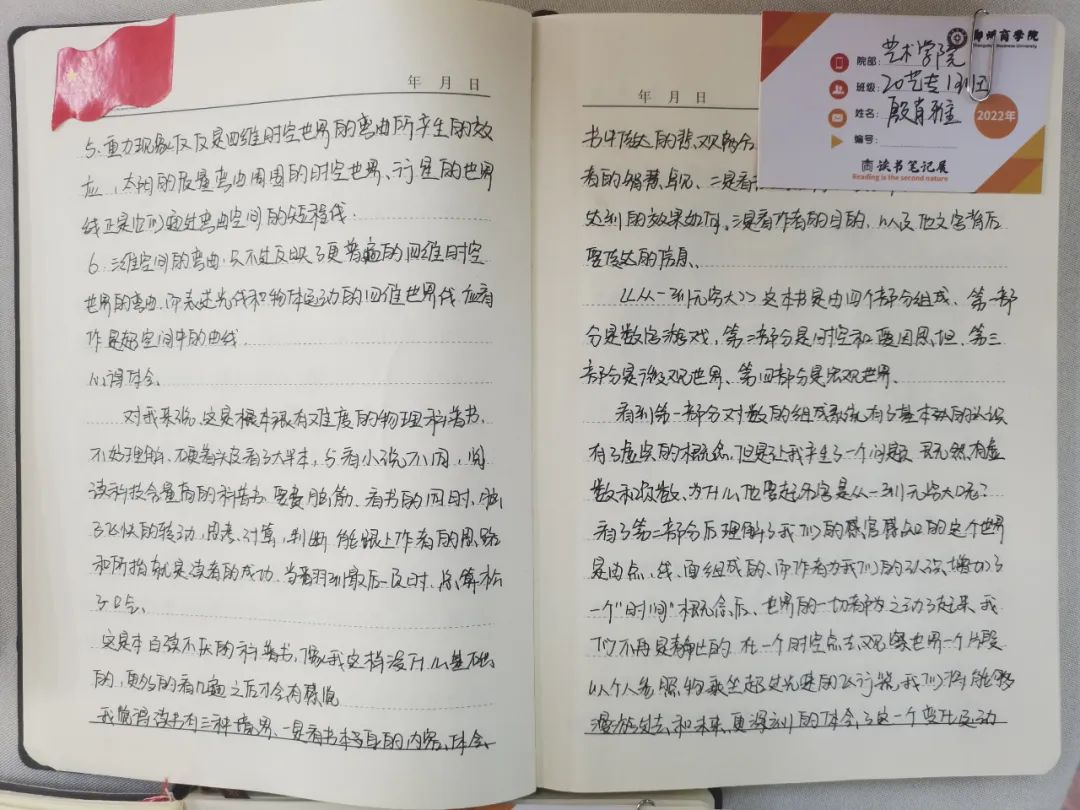 年 月 日
5.重力现象仅仅是四维时空世界的弯曲所产生的效
应,太阳的质量弯曲周围的时空世界、行星的世界
线正是它们通过弯曲空间的短程线.
6.三维空间的弯曲,只不过反映了更普遍的四维时空
世界的弯曲.而表述光线和物体运动的四维世界线应看
作是超空间中的曲线.
心得体会、
对我来说,这是一本很有难度的物理科普书,
不好理解、硬着头皮看了大半本,与看小说不同,阅
读科技含量高的科普书.要费脑筋.看书的同时,脑
子飞快的转动,思考、计算,判断能跟上作者的思路
和所指就是读者的成功.当看到最后一页时,总算松
了口气、
这是本百读不厌的科普书,像我这样没什么基础
的,更多的看几遍之后才会有感觉
我觉得读书有三种境界、一是看书本身的内容、体会、
年 月 日
书中传达的悲、观
看的智慧、二是看
达到的效果如何、三是看作者的目的,以及他文字背后
要传达的信息、
《从一到无穷大》这本书是由四个部分组成、第一部
分是数字游戏,第二部分是时空和爱因思坦、第三
部分是微观世界、第四部分是宏观世界、
看到第一部分对数的组成系统有了基本的认识
有了虚实的概念,但是让我产生了一个问题既然有虚
数和负数、为什么他要起名字是从一到无穷大呢?
看了第二部分后理解了我们的感官感知的这个世界
是由点、线、面组成的、而作者为我们的认识增加了
一个“时间”概念后、世界的一切都为之动了起来、我
们不再是静止的在一个时空点去观察世界一个片段
以个人参照物乘坐超过光速的飞行器,我们将能够
漫游过去、和未来、更深刻的体会了这一个变化运动
郑州商学院
Zhengzhou Business University
院部:艺术学院
班级:20艺专13班
姓名:殷肖雅
编号:
2022年
读书笔记展
Reading is the second nature